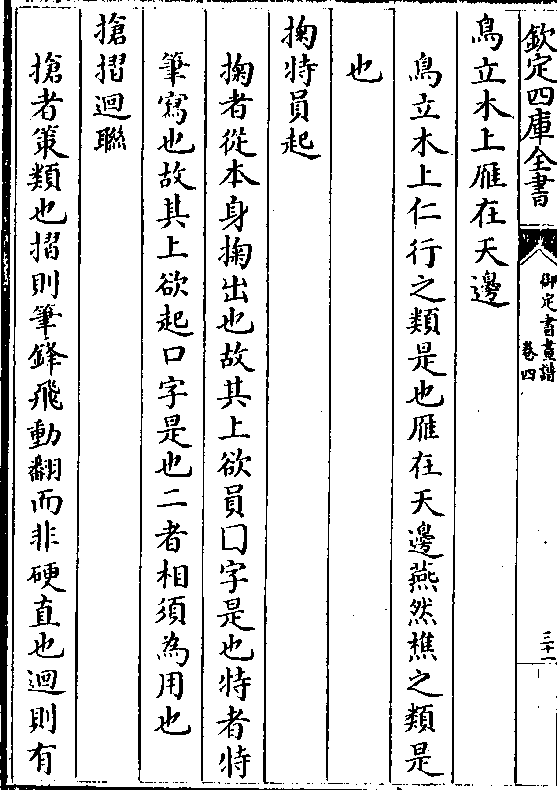 欽定四庫全書
御定書畫譜
卷四
三十一
鳥立木上雁在天邊
鳥立木上仁行之類是也雁在天邊燕然樵之類是
也
掬特員起
掬者從本身掬出也故其上欲員囗字是也特者特
筆寫也故其上欲起口字是也二者相須為用也
搶摺迴聯
搶者策類也摺則筆鋒飛動翻而非硬直也迴則有